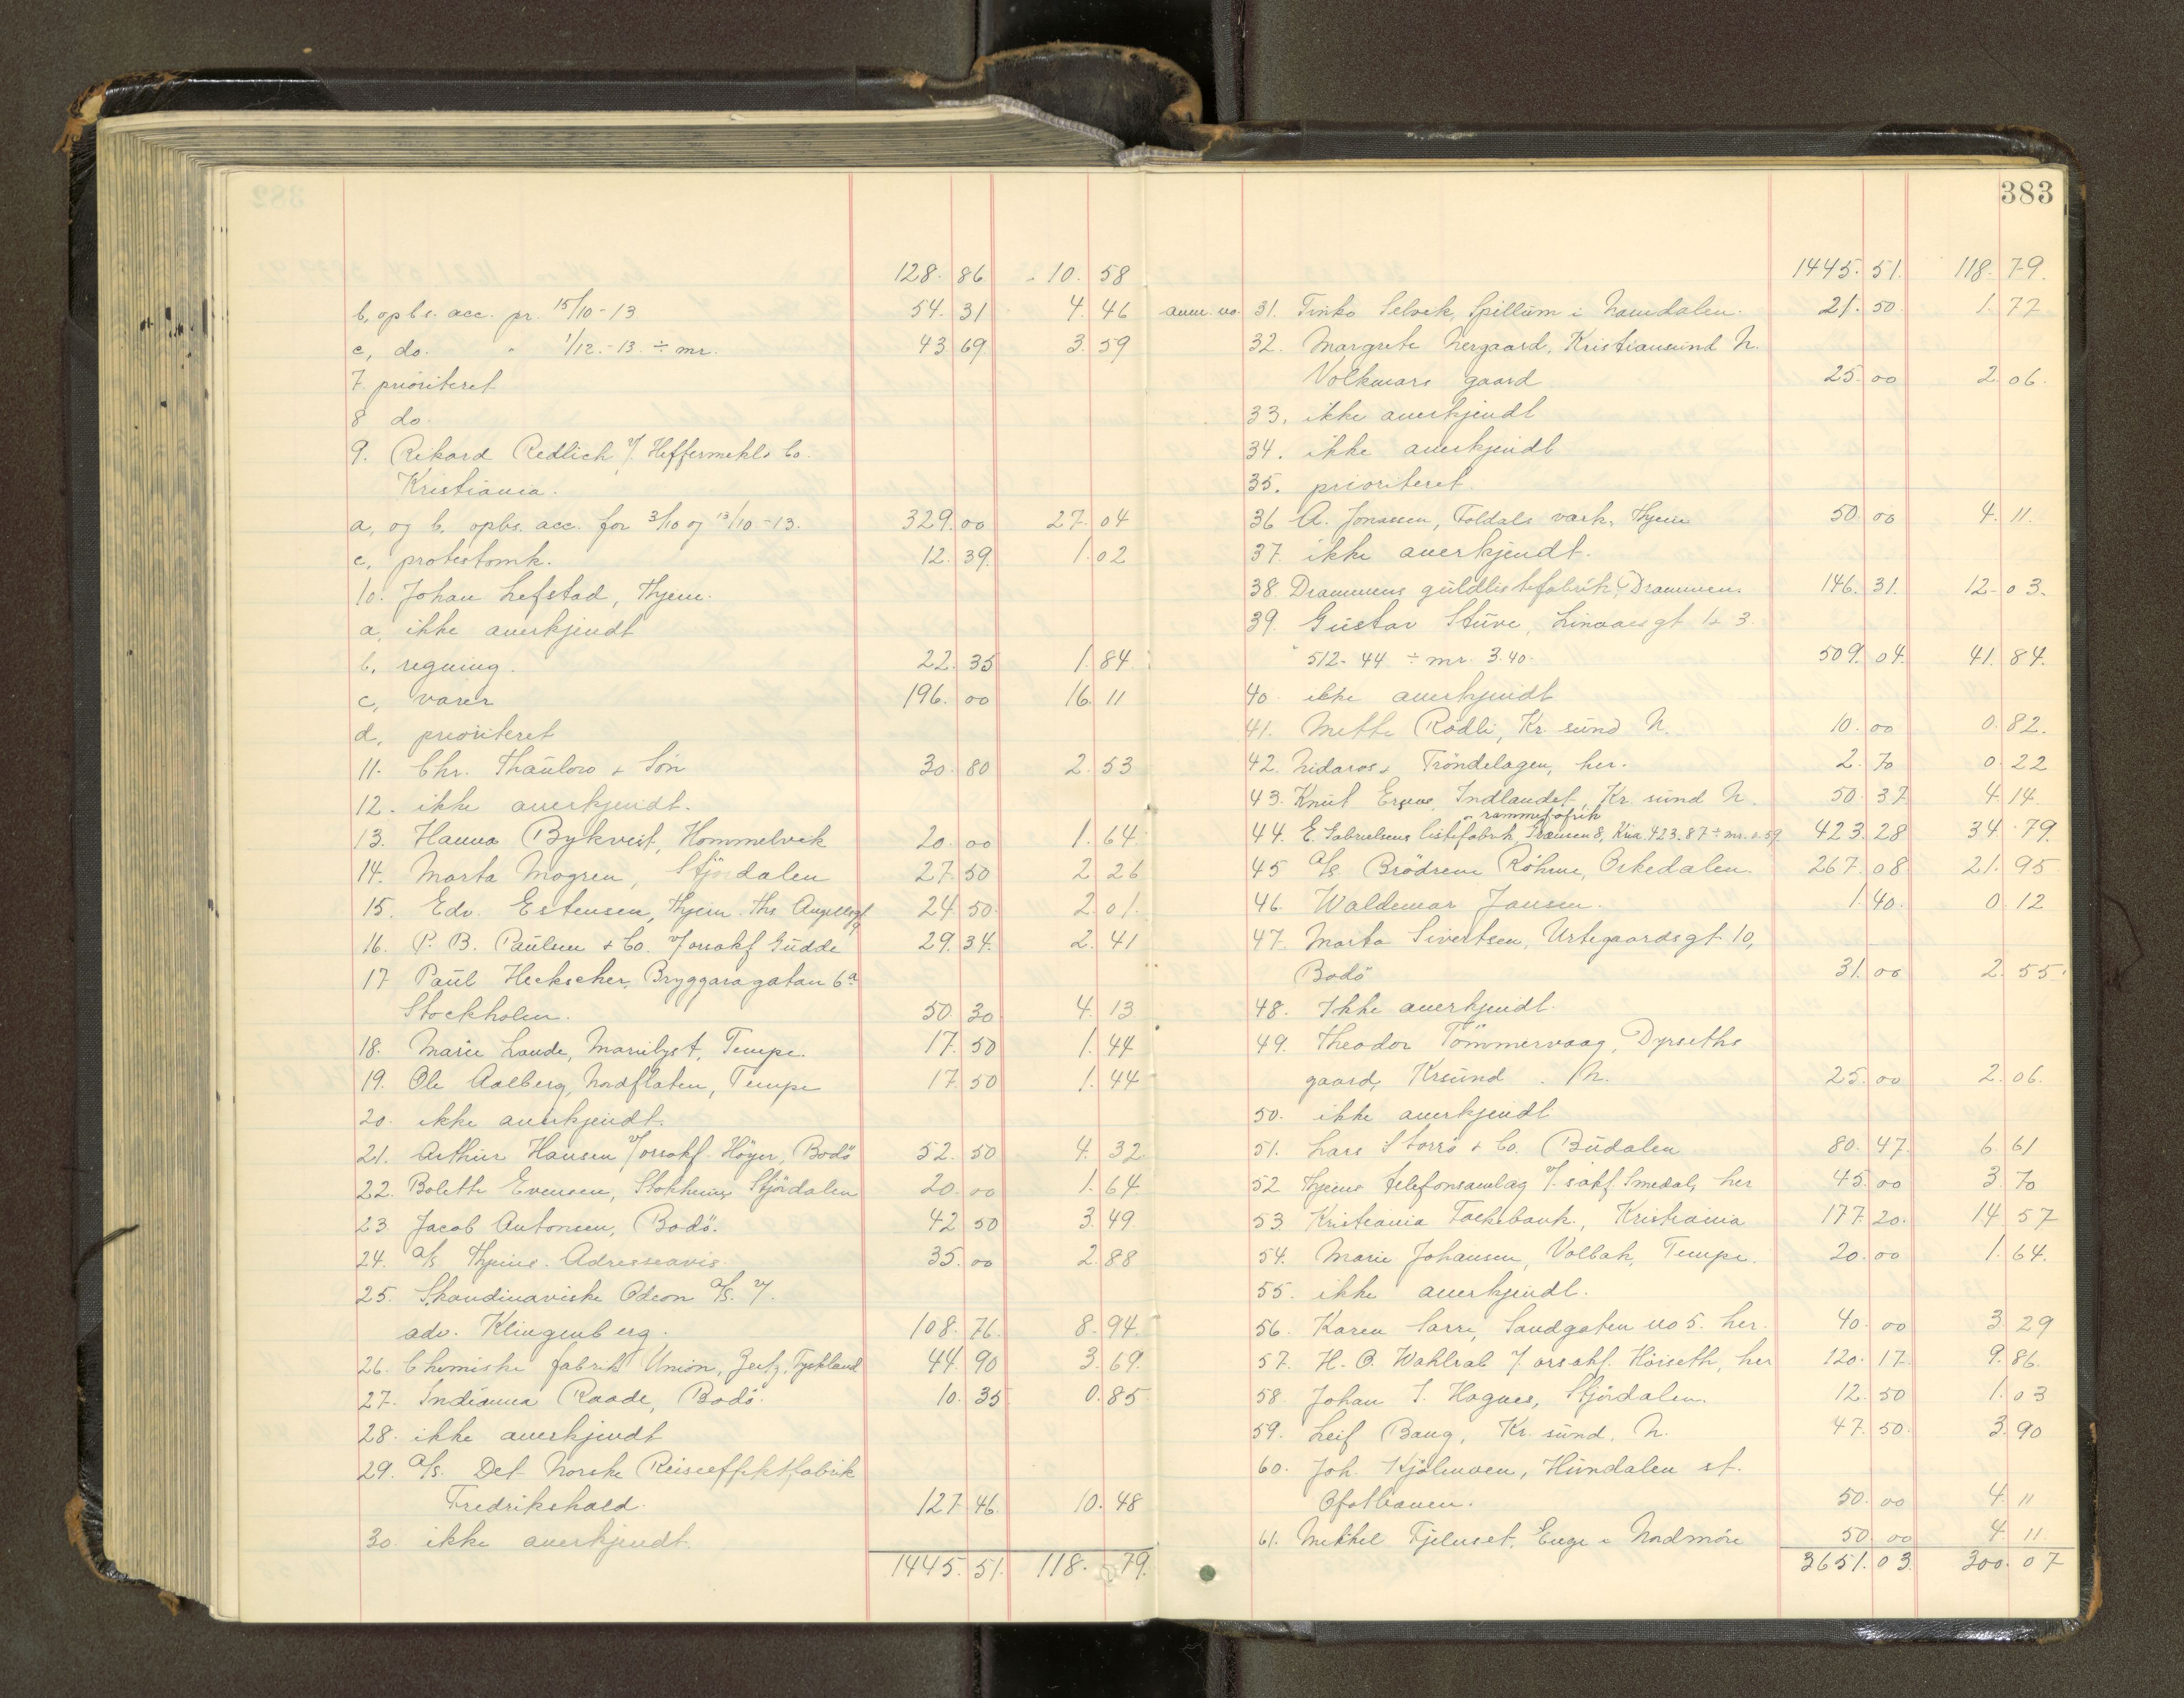 128. 86. 10. 58
b, opbs. acc. pr. 15/10-13 54. 31 4. 46
c, do. " 1/12.-13 ÷ mr. 43 69 3. 59
7. prioriteret
8 do.
9. Rikard Redlich v/. Heffermehls Co.
Kristiania.
a, og b. opbs. acc. for 3/10 og 13/10-13. 329. 00 27. 04
c, protestomk. 12. 39. 1. 02
10. Johan Lefstad, Thjem.
a, ikke anerkjendt
b, regning. 22. 35 1. 84
c, varer 196. 00 16 11
d. prioriteret
11. Chr. Thaulow & Søn 30. 80 2. 53
12. ikke anerkjendt.
13. Hanna Bykvist, Hommelvik 20. 00 1. 64
14. Marta Mogren, Stjørdalen 27. 50 2 26
15. Edv. Estensen, Thjem. Ths Angellsgt 9 24 50. 2. 01.
16. P. B. Paulsen & Co. v/ orsakf Gudde 29. 34. 2. 41
17 Paul Heckscher, Bryggaragatan 6a
Stockholm. 50. 30 4. 13
18. Marie Lande, Marielyst, Tempe. 17. 50 1. 44
19. Ole Aalberg, Nordflaten, Tempe 17. 50 1. 44
20. ikke anerkjendt.
21. Arthur Hansen v/ orsakf. Høyer, Bodö 52. 50 4. 32
22. Bolette Evensen, Stokheims Stjørdalen 20. 00 1. 64
23. Jacob Antonsen, Bodö. 42 50 3. 49
24. a/s Thjems. Adresseavis. 35. 00 2. 88
25. Skandinaviske Odeon a/s. v/.
adv. Klingenberg. 108. 76. 8. 94.
26. Chemiske fabrik Union, Zeitz, Tyskland 44. 90 3. 69.
27. Indianna Raade, Bodö. 10. 35 0. 85
28. ikke anerkjendt
29. a/s. Det Norske Reiseeffektfabrik
Fredrikshald. 127 46. 10. 48
30. ikke anerkjendt.
1445. 51. 118. 79.
383
1445. 51. 118. 79.
anm. no. 31. Finko Selvik, Spillum i Namdalen. 21. 50 1. 77
32. Margrete Nergaard, Kristiansund N.
Volkmars gaard 25. 00 2. 06.
33. ikke anerkjendt
34. ikke anerkjendt
35. prioriteret
36 A. Jonassen, Foldals værk, Thjem 50. 00 4. 11.
37. ikke anerkjendt.
38. Drammens guldlistefabrik, Drammen. 146. 31. 12. 03.
39. Gustav Stuve, Linaaesgt 1 & 3.
512. 44 ÷ mr. 3.40. 509. 04. 41. 84.
40. ikke anerkjendt
41. Mette Rødli, Kr. sund N. 10. 00 0. 82.
42. Nidaros & Trøndelagen, her. 2. 70 0. 22
43. Knut Indlandet, Kr. sund N. 50. 37. 4. 14.
o rammefabrik
44. E. Gabrielsens listefabrik, Kria. 423.87 ÷ mr. 0.59. 423. 28 34. 79.
45 a/s Brødrene Røhme, Orkedalen. 267. 08 21. 95
46. Waldemar Jansen. 1. 40. 0. 12
47. Marta Sivertsen, Urtegaardsgt. 10,
Bodö 31. 00 2. 55.
48. Ikke anerkjendt.
49. Theodor Tømmervaag, Dyrseths
gaard, Krsund. N. 25. 00 2. 06.
50. ikke anerkjendt
51. Lars Storrø & Co. Budalen 80. 47. 6. 61
52 Thjems Telefonsamlag v/. sakf. Smedal, her 45. 00 3. 70
53. Kristiania Folkebank, Kristiania 177. 20. 14. 57
54. Marie Johansen, Volbak, Tempe. 20. 00 1. 64.
55. ikke anerkjendt.
56. Karen Sarri, Sandgaten no 5. her. 40. 00 3. 29
57. H. O. Wahlrab v/ orsakf. Høiseth, her 120. 17. 9. 86.
58 Johan I. Hognes, Stjørdalen. 12. 50 1. 03
59. Leif Baug, Kr. sund. N. 47. 50. 3. 90
60. Joh. Kjølmoen, Hundalen st.
Ofotbanen. 50. 00 4. 11
61. Mekkel Fjeluset, Enge i Nordmøre 50. 00 4. 11
3651. 03. 300. 07